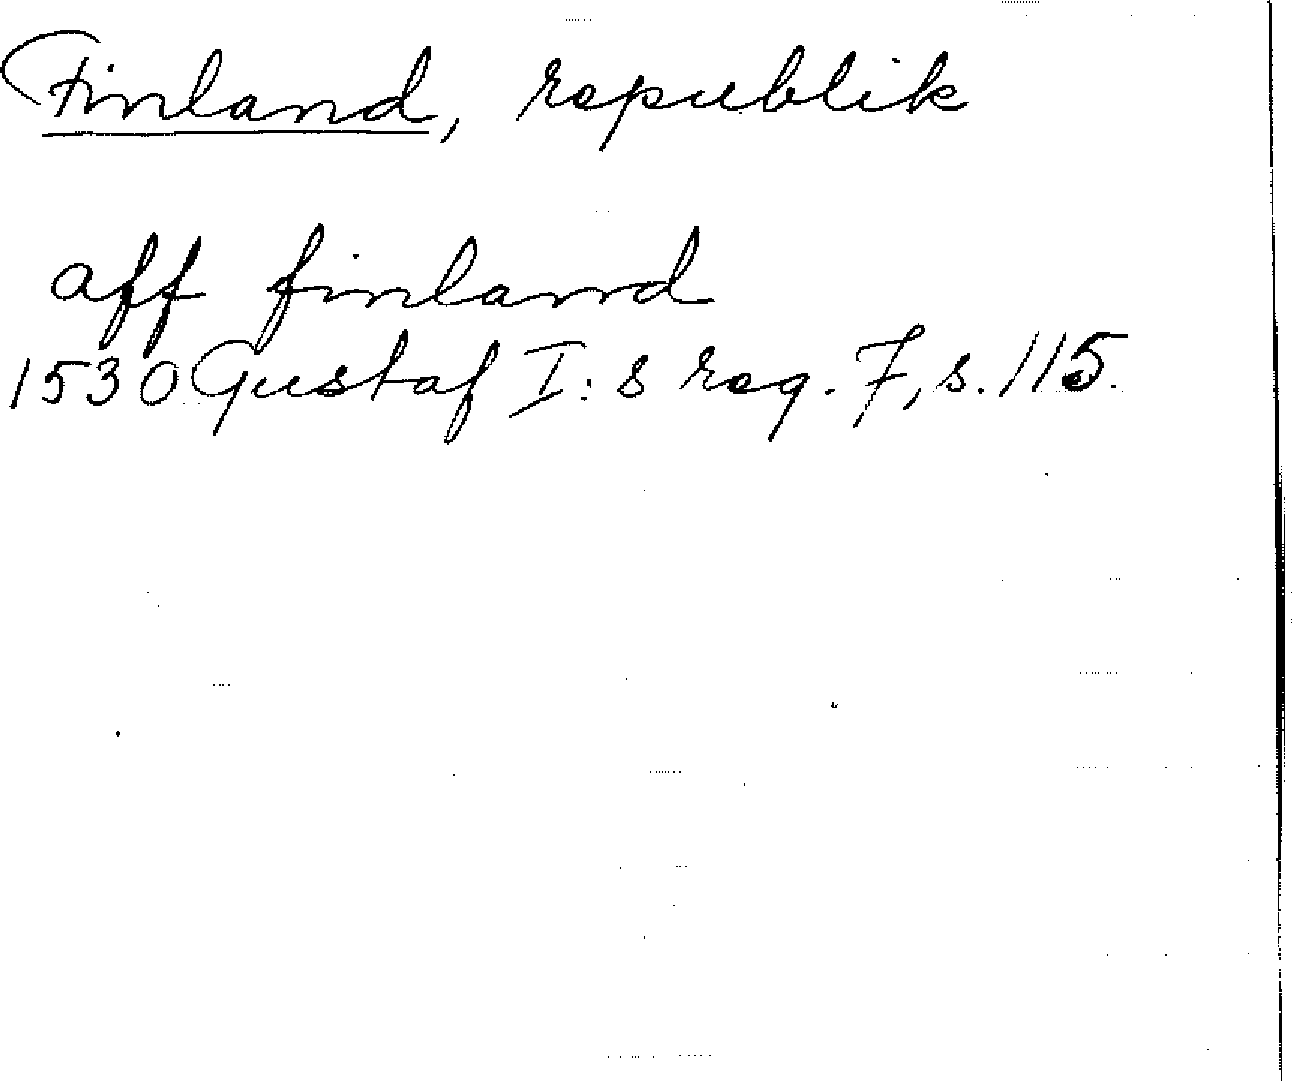 Finland, republik
aff finlannd
1530 Gustaf I:s reg. 7, s. 115.